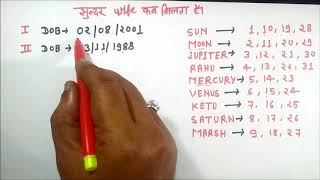 सुन्दर Wife कब मिलता है।
I DOB → 02/08/2001
II DOB → 3/11/1988
SUN → 1, 10, 19, 28
MOON → 2, 11, 20, 29
JUPITER → 3, 12, 21, 30
RAHU → 4, 13, 22, 31
MERCURY → 5, 14, 23
VENUS → 6, 15, 24
KETU → 7, 16, 25
SATURN → 8, 17, 26
MARSH → 9, 18, 27